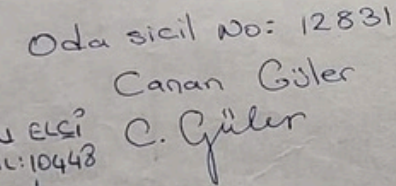 Oda sicil No: 12831
Canan Güler
C. Güler
ELÇİ
:10448